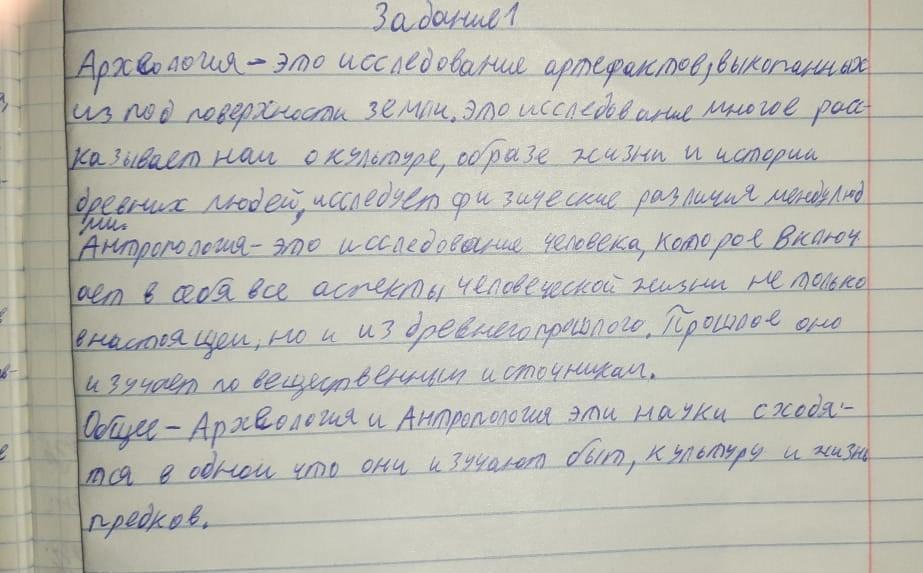 Задание 1
Археология - это исследование артефактов, выкопанных
из под поверхности земли. это исследование многое расс-
казывает нам о культуре, образе жизни и истории
древних людей, исследует физические различия между люд
ми.
Антропология - это исследование человека, которое включ
ает в себя все аспекты человеческой жизни не только
в настоящем, но и из древнего прошлого. Прошлое оно
изучает по вещественным источникам.
Общее - Археология и Антропология эти науки сходя-
тся в одном что они изучают быт, культуру и жизнь
предков.